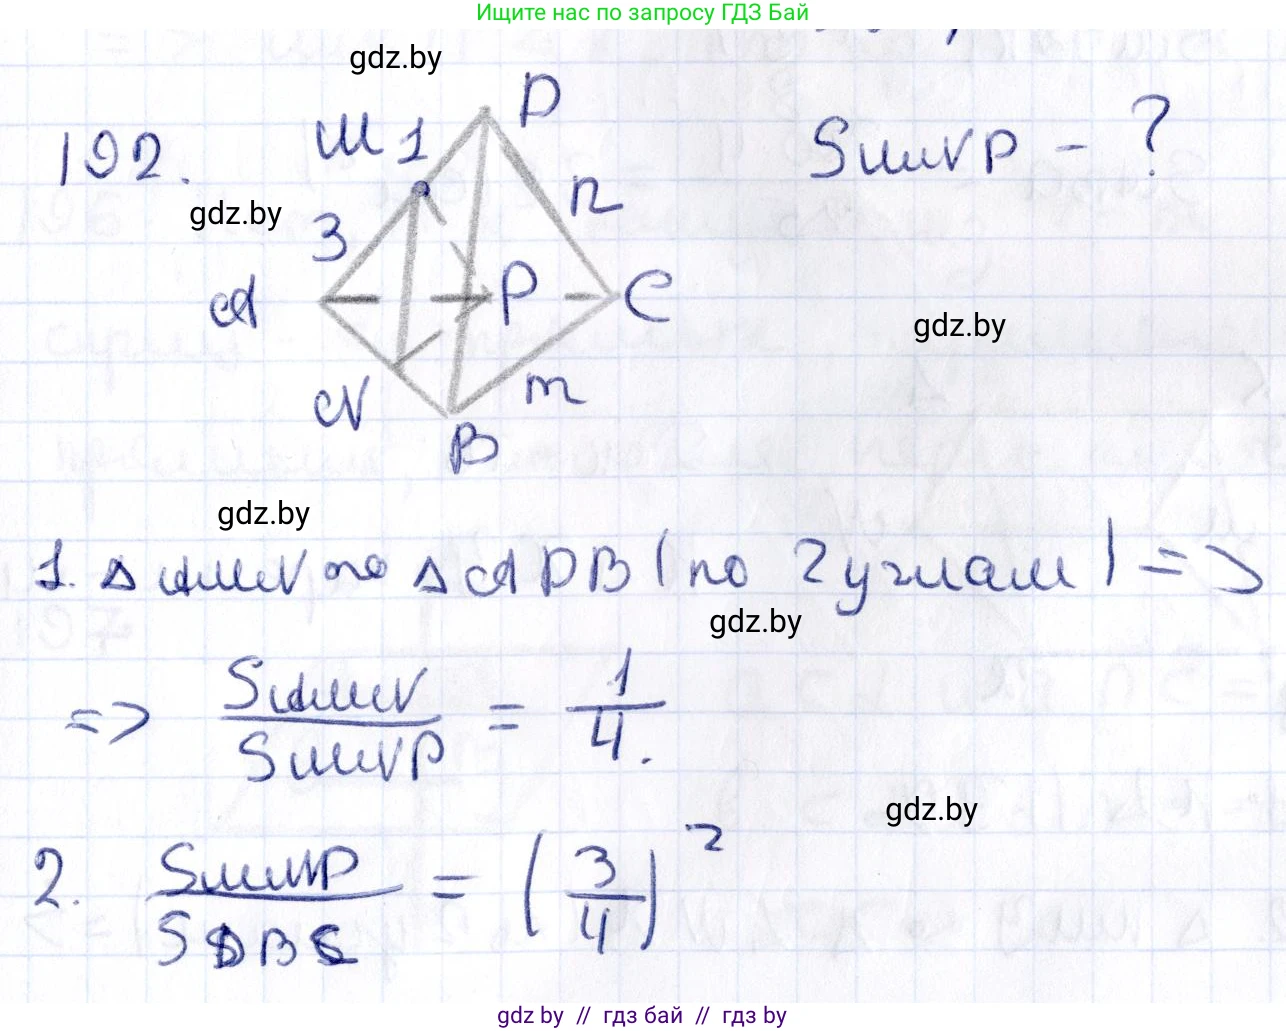 Ищите нас по запросу ГДЗ Бай
gdz.by
192.
M 1
D
S MNP - ?
n
gdz.by
3
A
P
C
gdz.by
N
m
B
gdz.by
1. Δ AMN ∾ Δ ADB (по 2 углам) =>
gdz.by
=> S AMN / S MNP = 1/4.
gdz.by
2. S MNP / S DBC = (3/4)²
gdz.by // гдз бай // гдз by